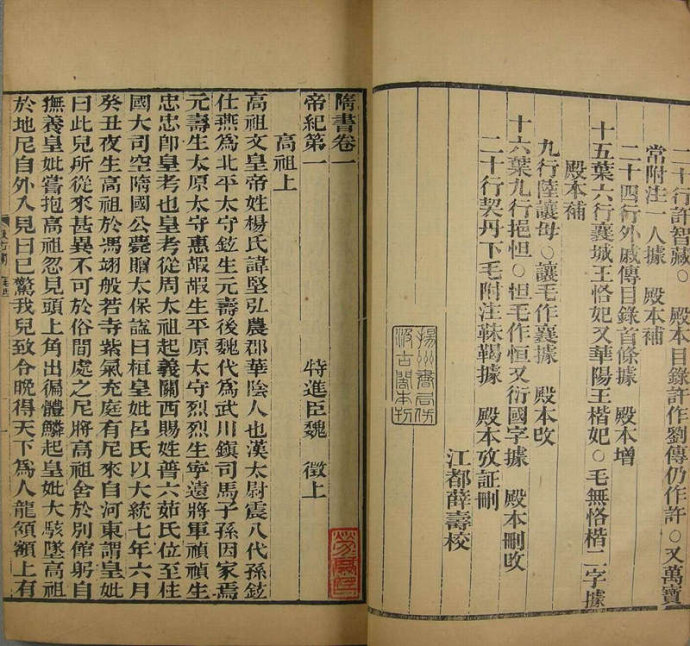 二十行許智藏○殿本目錄許作劉傳仍作許○又萬寶
常附注一人據 殿本補
二十四行外戚傳目錄首條據 殿本增
十五葉六行襄城王恪妃又華陽王楷妃○毛無恪楷二字據
殿本補
九行陸讓母○讓毛作襄據 殿本改
十六葉九行挹怛○怛毛作恒又衍國字據 殿本刪改
二十行契丹下毛附注靺鞨據 殿本攷証刪
江都薛壽校
揚州書局仿
汲古閣本刊
隋書卷一
特進臣魏 徵上
帝紀第一
高祖上
高祖文皇帝姓楊氏諱堅弘農郡華陰人也漢太尉震八代孫鉉
仕燕為北平太守鉉生元壽後魏代為武川鎮司馬子孫因家焉
元壽生太原太守惠嘏嘏生平原太守烈烈生寧遠將軍禎禎生
忠忠卽皇考也皇考從周太祖起義關西賜姓普六茹氏位至柱
國大司空隋國公薨贈太保諡曰桓皇妣呂氏以大統七年六月
癸丑夜生高祖於馮翊般若寺紫氣充庭有尼來自河東謂皇妣
曰此兒所從來甚異不可於俗間處之尼將高祖舍於別館躬自
撫養皇妣嘗抱高祖忽見頭上角出徧體鱗起皇妣大駭墜高祖
於地尼自外入見曰已驚我兒致令晚得天下為人龍頷額上有